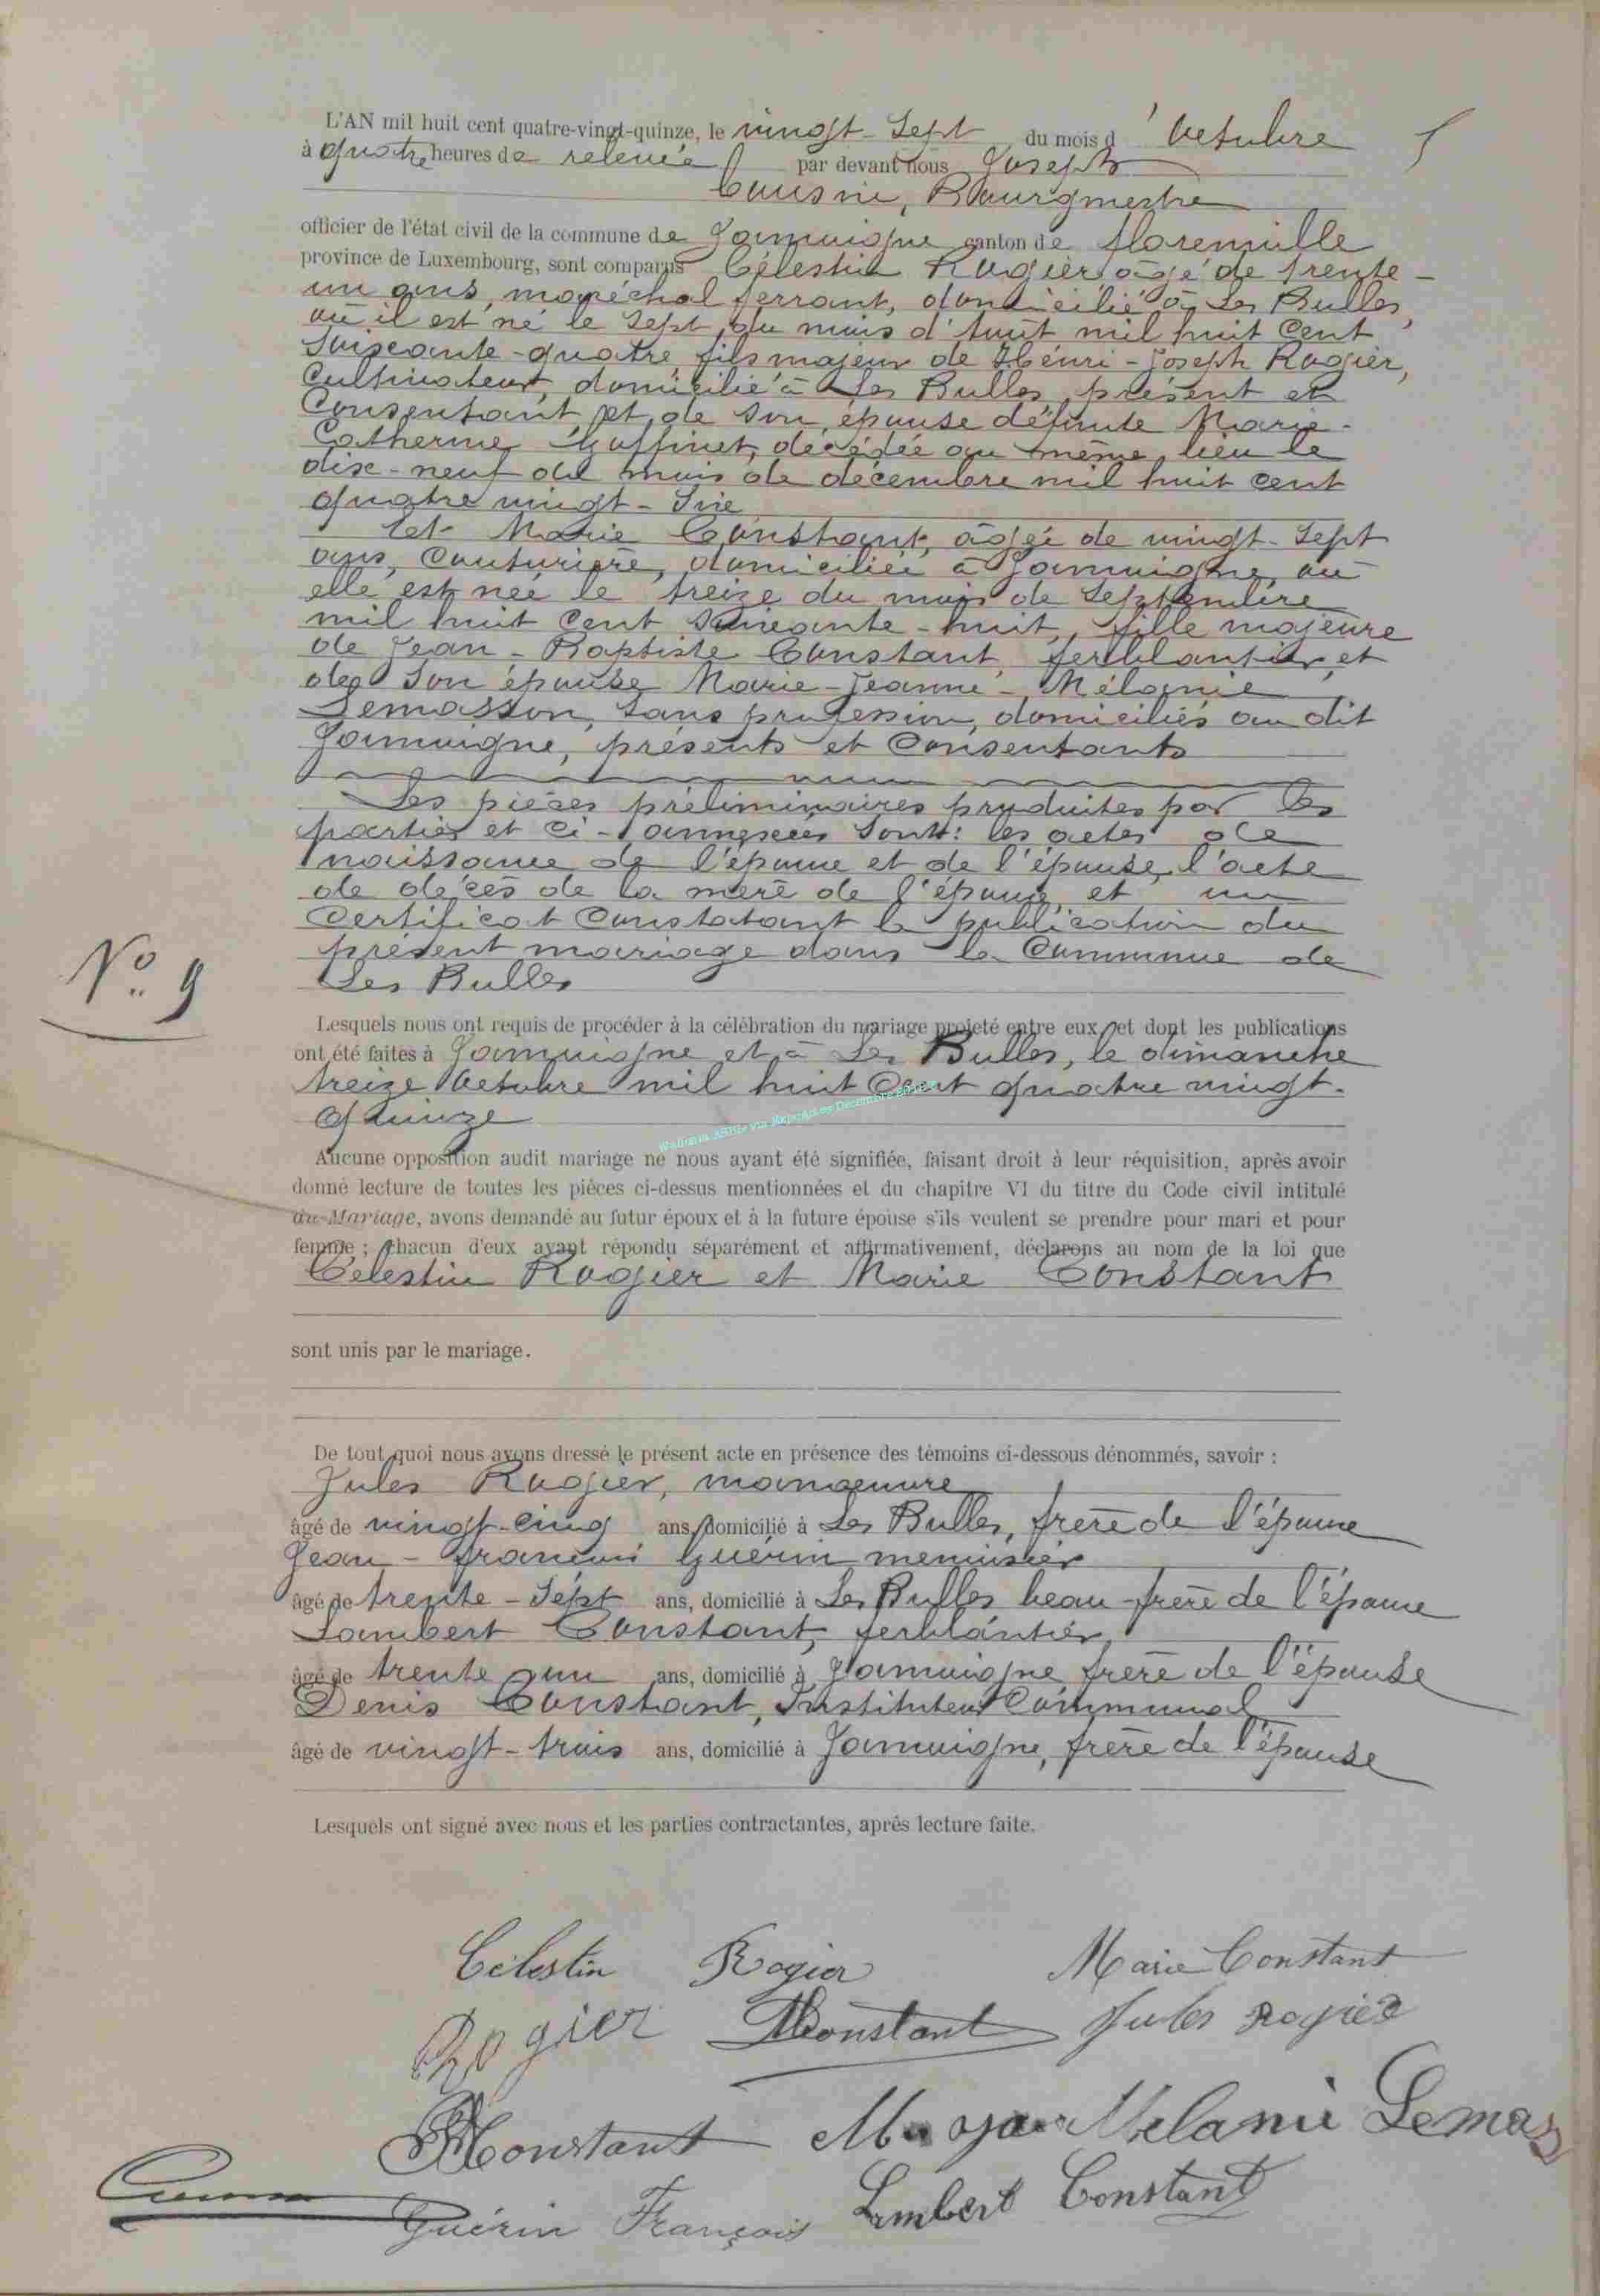 L'AN mil huit cent quatre-vingt-quinze, le vingt-sept du mois d'Octobre
à quatre heures de relevée par devant nous Joseph
Bourgmestre
officier de l'état civil de la commune de Jamoigne canton de florenville
province de Luxembourg, sont comparus Célestin Rogier âgé de trente-
un ans, maréchal ferrant, domicilié à Les Bulles,
où il est né le sept du mois d'Août mil huit cent
soixante-quatre, fils majeur de Hénri-Joseph Rogier,
Cultivateur, domicilié à Les Bulles, présent et
Consentant, et de son épouse défunte Marie-
Catherine Goffinet, décédée au même lieu le
dix-neuf du mois de décembre mil huit cent
quatre vingt-
Et Marie Constant, âgée de vingt-sept
ans, Couturière, domiciliée à Jamoigne, où
elle est née le treize du mois de Septembre
mil huit cent soixante-huit, fille majeure
de Jean-Baptiste Constant, ferblantier, et
de son épouse Marie-Jeanne-Mélanie
Lemasson, sans profession, domiciliés au dit
Jamoigne, présents et Consentants
Les pièces préliminaires produites par les
parties et ci-annexées sont: les actes de
naissance de l'époux et de l'épouse, l'acte
de décès de la mère de l'époux, et un
Certificat Constatant la publication du
présent mariage dans la Commune de
Les Bulles
No. 9
Lesquels nous ont requis de procéder à la célébration du mariage projeté entre eux, et dont les publications
ont été faites à Jamoigne et à Les Bulles, le dimanche
treize Octobre mil huit Cent quatre vingt-
quinze
Aucune opposition audit mariage ne nous ayant été signifiée, faisant droit à leur réquisition, après avoir
donné lecture de toutes les pièces ci-dessus mentionnées et du chapitre VI du titre du Code civil intitulé
du Mariage, avons demandé au futur époux et à la future épouse s'ils veulent se prendre pour mari et pour
femme; chacun d'eux ayant répondu séparément et affirmativement, déclarons au nom de la loi que
Célestin Rogier et Marie Constant
sont unis par le mariage.
De tout quoi nous avons dressé le présent acte en présence des témoins ci-dessous dénommés, savoir:
Jules Rogier, manœuvre
âgé de vingt-cinq ans, domicilié à Les Bulles, frère de l'époux
Jean-françois Guérin, menuisier
âgé de trente-sept ans, domicilié à Les Bulles beau-frère de l'époux
Lambert Constant, ferblantier,
âgé de trente un ans, domicilié à Jamoigne, frère de l'épouse
Denis Constant, Instituteur Communal
âgé de vingt-trois ans, domicilié à Jamoigne, frère de l'épouse
Lesquels ont signé avec nous et les parties contractantes, après lecture faite.
Célestin Rogier Marie Constant
Rogier Constant Jules Rogier
Constant Melanie Lemas
Guérin François Lambert Constant